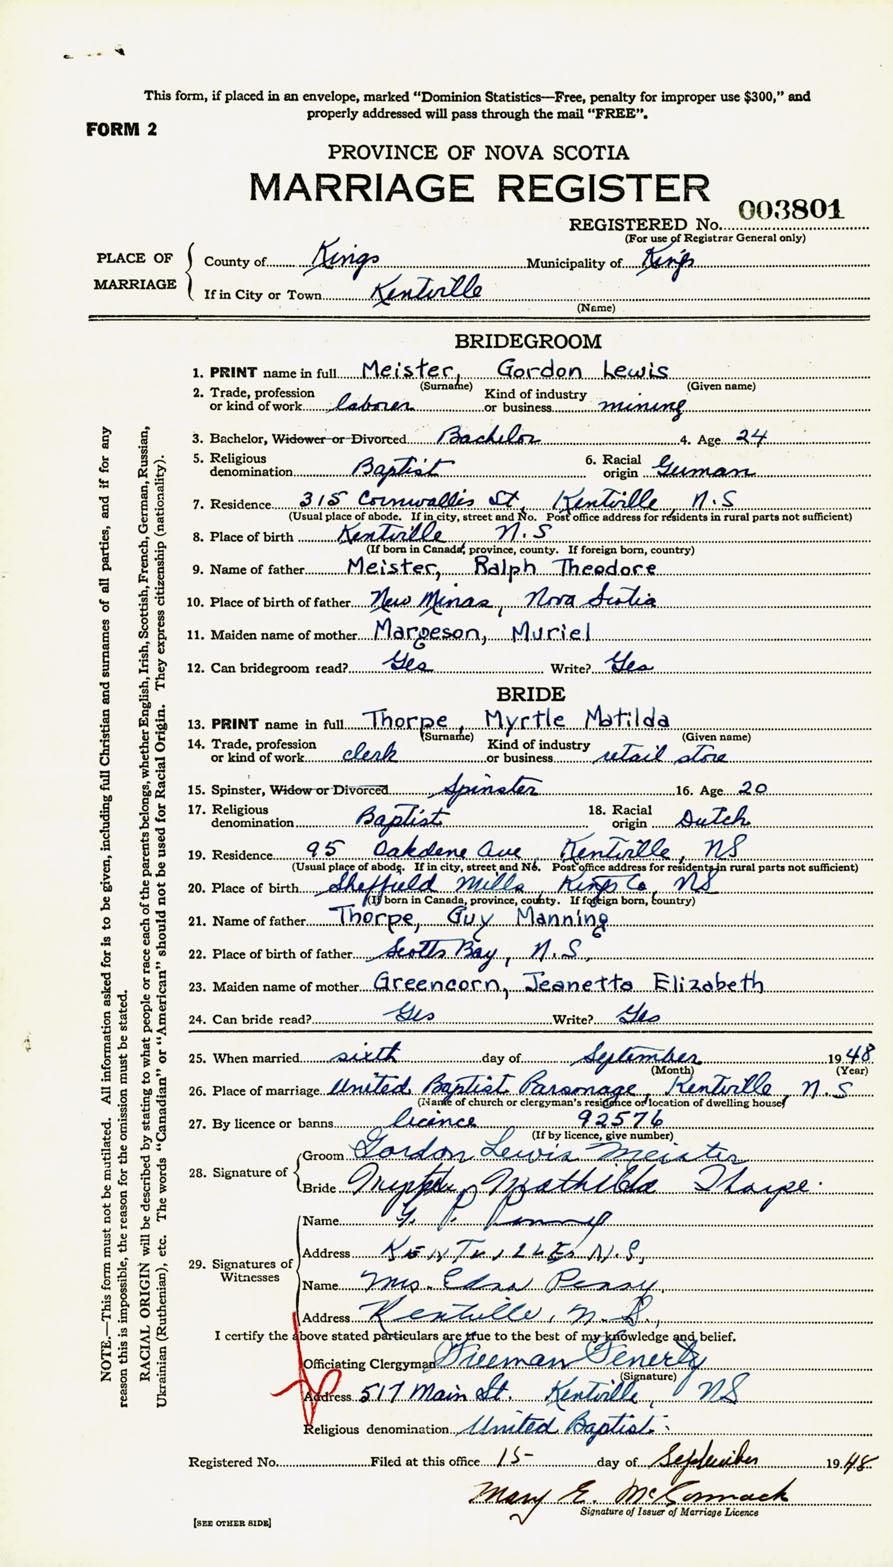 This form, if placed in an envelope, marked "Dominion Statistics—Free, penalty for improper use $300," and
properly addressed will pass through the mail "FREE".
FORM 2
PROVINCE OF NOVA SCOTIA
MARRIAGE REGISTER
REGISTERED No. 003801
(For use of Registrar General only)
PLACE OF MARRIAGE
County of Kings Municipality of Kings
If in City or Town Kentville
(Name)
BRIDEGROOM
1. PRINT name in full Meister, Gordon Lewis
(Surname) (Given name)
2. Trade, profession or kind of work laborer Kind of industry or business mining
3. Bachelor, Widower or Divorced Bachelor 4. Age 24
5. Religious denomination Baptist 6. Racial origin German
7. Residence 315 Cornwallis St, Kentville, N.S
(Usual place of abode. If in city, street and No. Post office address for residents in rural parts not sufficient)
8. Place of birth Kentville N.S
(If born in Canada, province, county. If foreign born, country)
9. Name of father Meister, Ralph Theodore
10. Place of birth of father New Minas, Nova Scotia
11. Maiden name of mother Margeson, Muriel
12. Can bridegroom read? Yes Write? Yes
BRIDE
13. PRINT name in full Thorpe, Myrtle Matilda
(Surname) (Given name)
14. Trade, profession or kind of work clerk Kind of industry or business retail store
15. Spinster, Widow or Divorced Spinster 16. Age 20
17. Religious denomination Baptist 18. Racial origin Dutch
19. Residence 95 Oakdene Ave, Kentville, NS
(Usual place of abode. If in city, street and No. Post office address for residents in rural parts not sufficient)
20. Place of birth Sheffield Mills, Kings Co, NS
(If born in Canada, province, county. If foreign born, country)
21. Name of father Thorpe, Guy Manning
22. Place of birth of father Scotts Bay, N.S,
23. Maiden name of mother Greencorn, Jeanetta Elizabeth
24. Can bride read? Yes Write? Yes
25. When married sixth day of September 1948
(Month) (Year)
26. Place of marriage United Baptist Parsonage, Kentville, N.S
(Name of church or clergyman's residence or location of dwelling house)
27. By licence or banns licence 92576
(If by licence, give number)
28. Signature of
Groom Gordon Lewis Meister
Bride Myrtle Mathilda Thorpe.
29. Signatures of Witnesses
Name G. P. Penny
Address KENTVILLE N.S,
Name Mrs. Edna Penny,
Address Kentville, N.S.,
I certify the above stated particulars are true to the best of my knowledge and belief.
Officiating Clergyman Freeman Fenerty
(Signature)
Address 517 Main St. Kentville, NS
Religious denomination United Baptist.
Registered No. Filed at this office 15- day of September 1948
Mary E. McCormack
Signature of Issuer of Marriage Licence
[SEE OTHER SIDE]
NOTE.—This form must not be mutilated. All information asked for is to be given, including full Christian and surnames of all parties, and if for any
reason this is impossible, the reason for the omission must be stated.
RACIAL ORIGIN will be described by stating to what people or race each of the parents belongs, whether English, Irish, Scottish, French, German, Russian,
Ukrainian (Ruthenian), etc. The words "Canadian" or "American" should not be used for Racial Origin. They express citizenship (nationality).